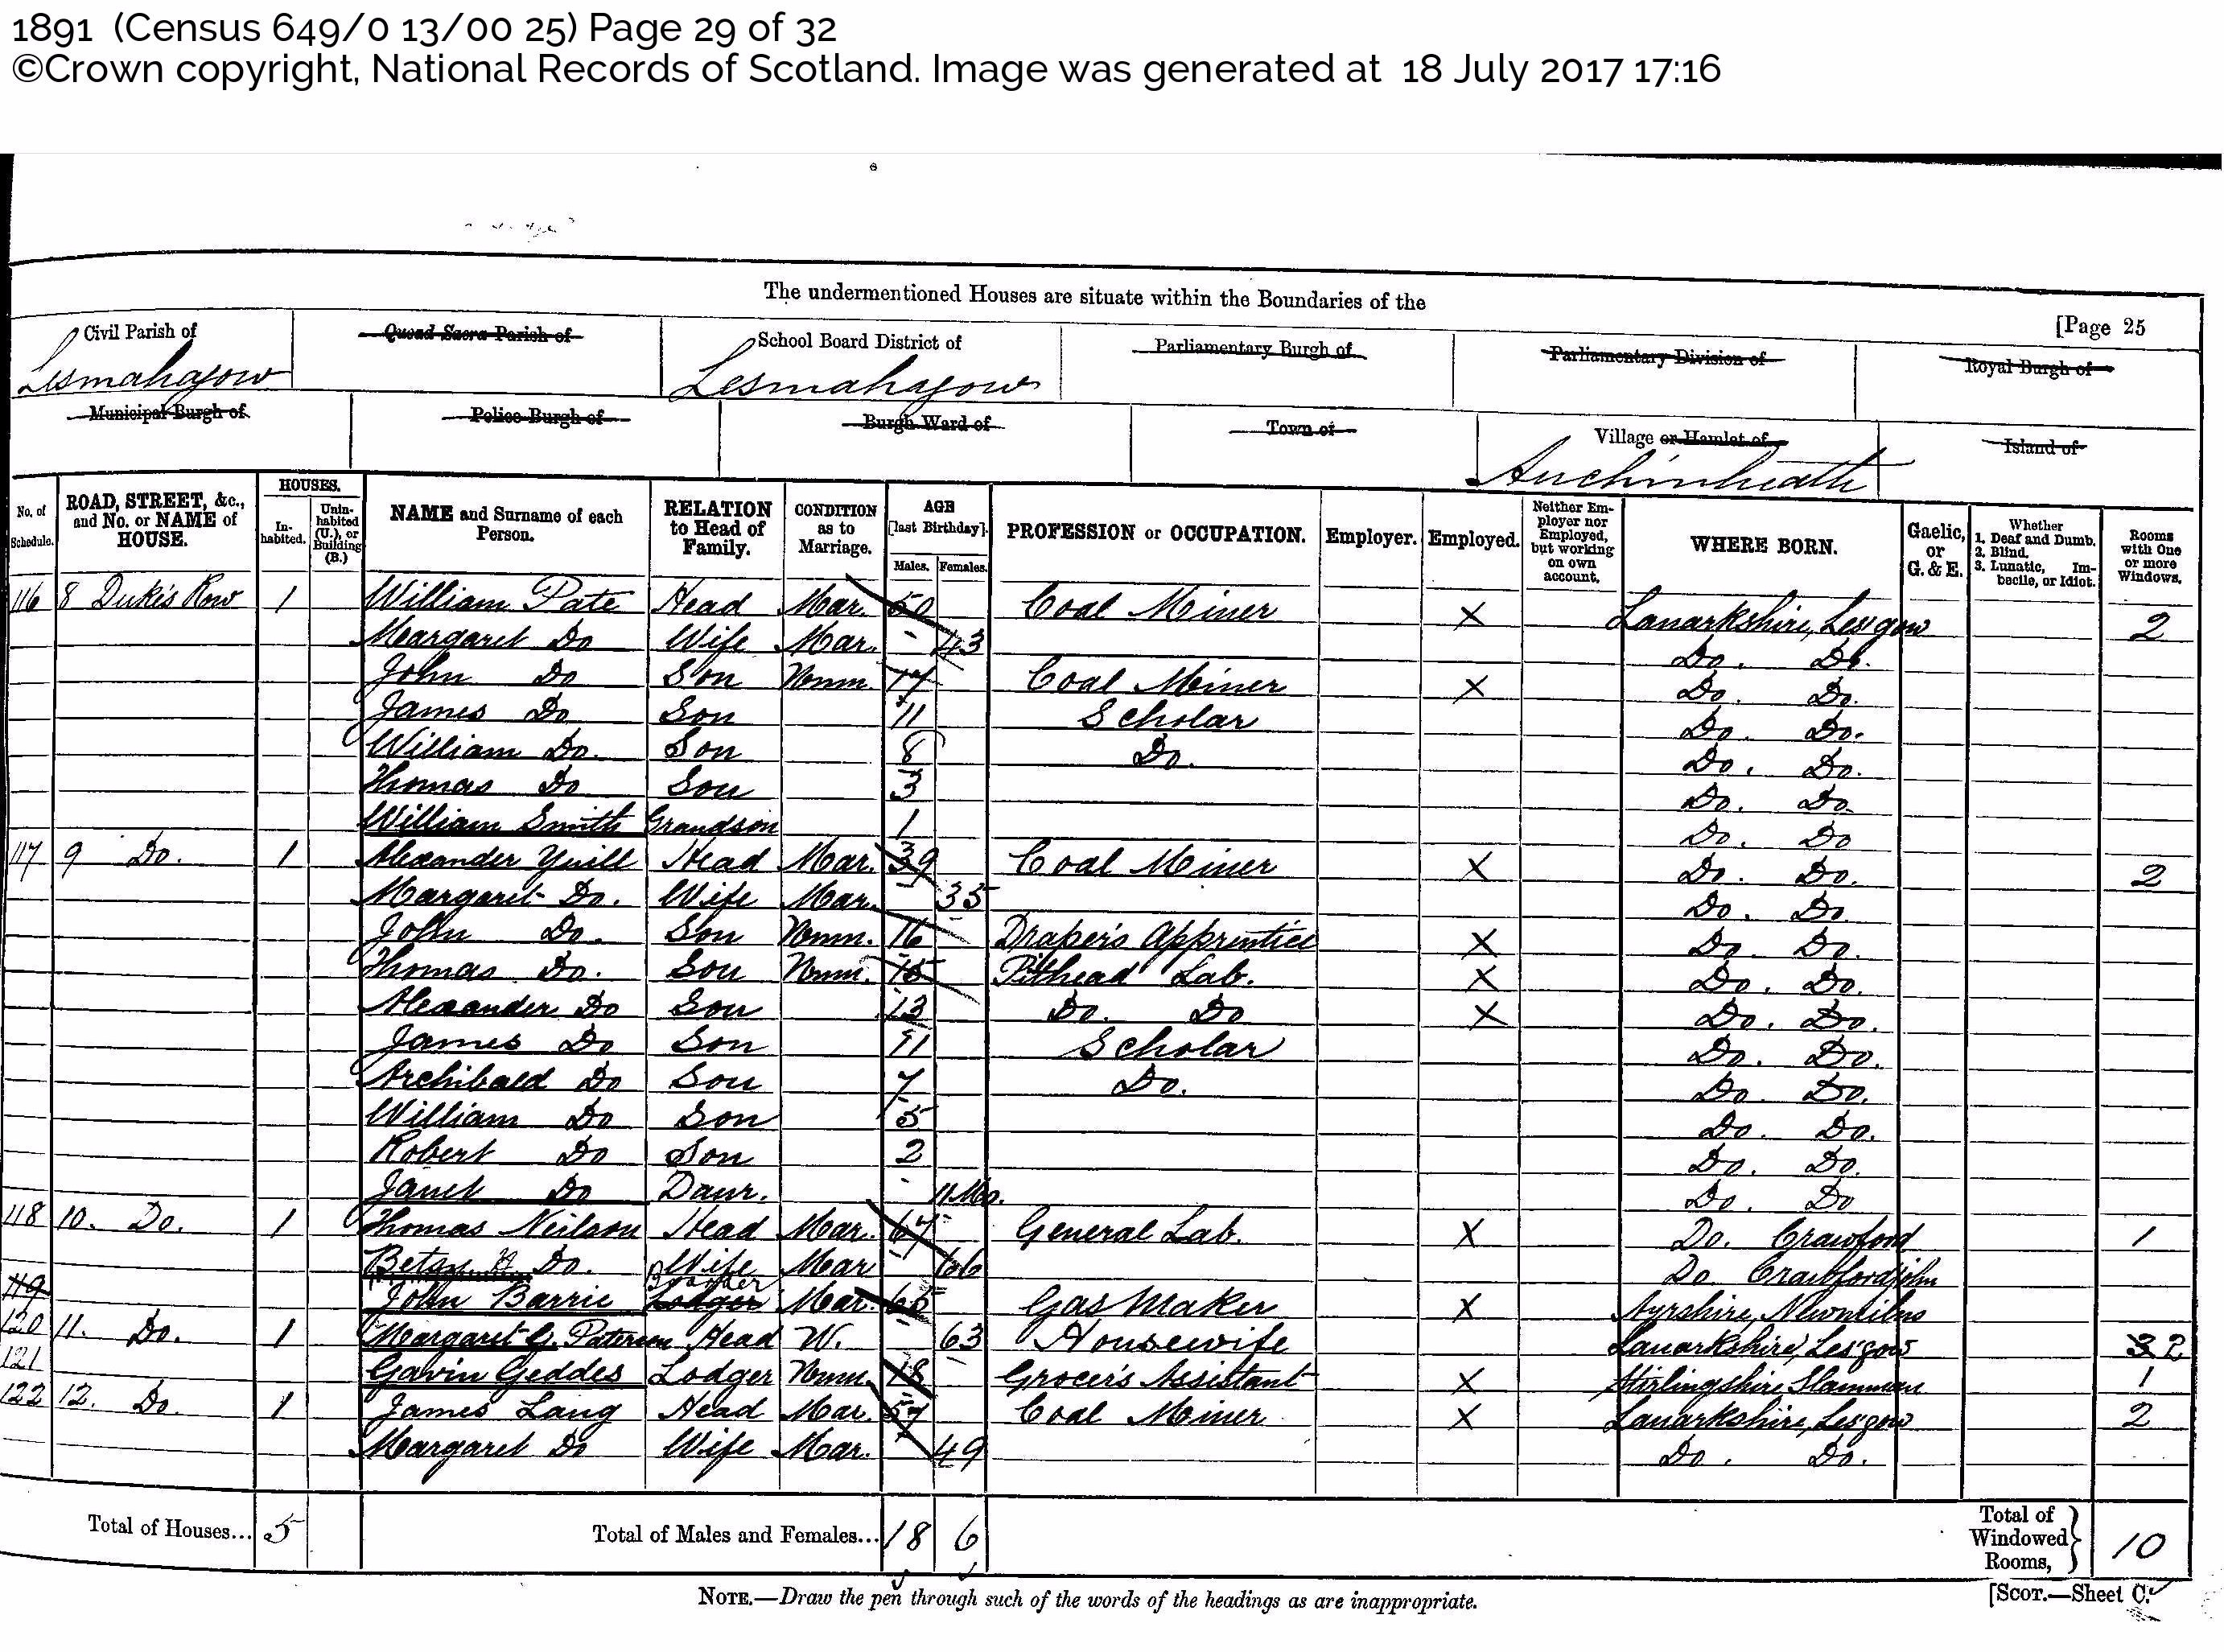 1891 (Census 649/0 13/00 25) Page 29 of 32
©Crown copyright, National Records of Scotland. Image was generated at 18 July 2017 17:16
The undermentioned Houses are situate within the Boundaries of the
[Page 25
Civil Parish of Quoad Sacra Parish of School Board District of Parliamentary Burgh of Parliamentary Division of Royal Burgh of
Lesmahagow Lesmahagow
Municipal Burgh of Police Burgh of Burgh Ward of Town of Village or Hamlet of Island of
Auchinheath
No. of Schedule. ROAD, STREET, &c., and No. or NAME of HOUSE. HOUSES. Inhabited. Uninhabited (U.), or Building (B.) NAME and Surname of each Person. RELATION to Head of Family. CONDITION as to Marriage. AGE [last Birthday]. Males. Females. PROFESSION or OCCUPATION. Employer. Employed. Neither Employer nor Employed, but working on own account. WHERE BORN. Gaelic, or G. & E. Whether 1. Deaf and Dumb. 2. Blind. 3. Lunatic, Imbecile, or Idiot. Rooms with One or more Windows.
116 8 Duke's Row 1 William Pate Head Mar. 50 Coal Miner X Lanarkshire, Les'gow 2
Margaret Do Wife Mar. - 43 Do. Do.
John Do Son Unm. 17 Coal Miner X Do. Do.
James Do Son 11 Scholar Do. Do.
William Do. Son 8 Do. Do. Do.
Thomas Do Son 3 Do. Do
William Smith Grandson 1 Do. Do
117 9 Do. 1 Alexander Yuill Head Mar. 39 Coal Miner X Do. Do. 2
Margaret Do. Wife Mar. 35 Do. Do.
John Do. Son Unm. 16 Draper's Apprentice X Do. Do.
Thomas Do. Son Unm. 15 Pithead Lab. X Do. Do.
Alexander Do Son 13 Do. Do X Do. Do.
James Do Son 11 Scholar Do. Do.
Archibald Do Son 7 Do. Do. Do.
William Do Son 5 Do. Do.
Robert Do Son 2 Do. Do.
Janet Do Daur. 11 Mo. Do. Do
118 10. Do. 1 Thomas Neilson Head Mar. 67 General Lab. X Do. Crawford 1
Betsy Do. Wife Mar 66 Do Crawfordjohn
119 John Barrie Lodger Boarder Mar. 65 Gas Maker X Ayrshire, Newmilns
120 11. Do. 1 Margaret G. Paterson Head W. 63 Housewife Lanarkshire, Les'gow 3 2
121 Gavin Geddes Lodger Unm. 18 Grocer's Assistant X Stirlingshire, Slamman 1
122 12. Do. 1 James Lang Head Mar. 57 Coal Miner X Lanarkshire, Les'gow 2
Margaret Do Wife Mar. 49 Do. Do.
Total of Houses... 5 Total of Males and Females... 18 6 Total of Windowed Rooms, 10
NOTE.—Draw the pen through such of the words of the headings as are inappropriate.
[SCOT.—Sheet C.